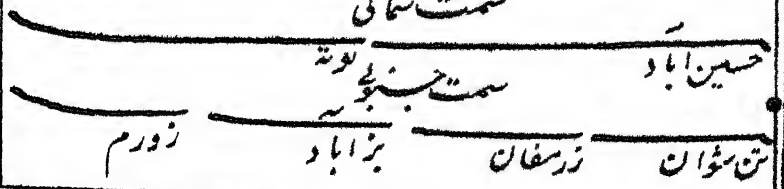 سمت شمالی
حسین آباد لوند
سمت جنوبی
زرسفان بزآباد زورم